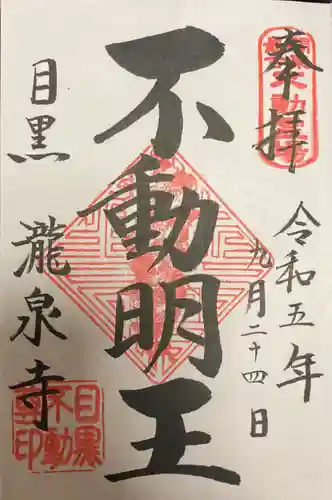 奉拝
令和五年
九月二十四日
不動明王
目黒
瀧泉寺
目黒
不動